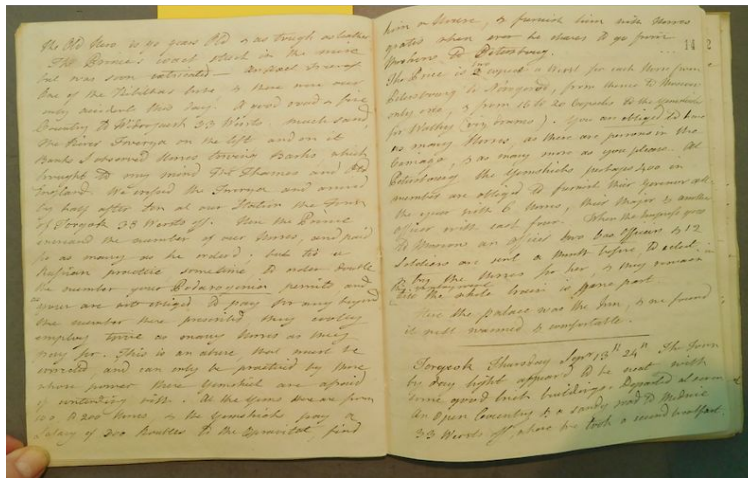 the Old Hero is 90 years Old & as tough as leather
The Prince's coach stuck in the mire
but was soon extricated — an axel tree of
One of the Kibitkas broke & these were our
only accidents this day. A good road a fine
Country to 33 Wersts much sand,
The River Tverza on the left and on it
Banks I observed Horses towing Barks, which
brought to my mind the Thames and
England. We crossed the Tverza and arrived
by half after ten at our Station the Town
of Torgok 33 Wersts off. Here the Prince
encreased the number of our Horses, and paid
for as many as he order'd; but tis a
Russian practice sometimes, to order double
the number your Podarogna permits and
your are not obliged to pay for any beyond
the number there prescribed they cooly
employ twice as many Horses as they
pay for. This is an abuse, that must be
correced, and can only be practised by those
whose power these Yemshicks are afraid
of contending with. At the Yams there are from
100 to 200 Horses, & the Yemshicks pay a
Salary of 200 Roubles to the, find
him a House, & furnish him with Horses
gratis when ever he chuses to go from
to Petersburg.
14 2
The Price is 2 copecks a Werst for each Horse from
Petersburg to Novgorod, from thence to Moscow
only one, & from 16 to 20 Copecks to the Yemshick
for Wodky (). You are obliged to have
as many Horses, as there are persons in the
, & as many more as you please. At
Petersburg the Yemshicks perhaps 400 in
number are obliged to furnish their Governor all
the year with 6 Horses, their Major & another
officer with each four. When the Empress goes
to Moscow an officer two officers & 12
Soldiers are sent a Month before, to select
& buy the Horses for her, & they remain
till the whole train is gone past.
Here the Palace was the Inn, & we found
it well warmed & comfortable.
Torgcok Thursday Sepr 13th 24th The Town
by day light appeared to be neat with
some good brick buildings. Departed at seven
An Open Country & a sandy road to Mednie
33 Wersts off, where we took a second breakfast.